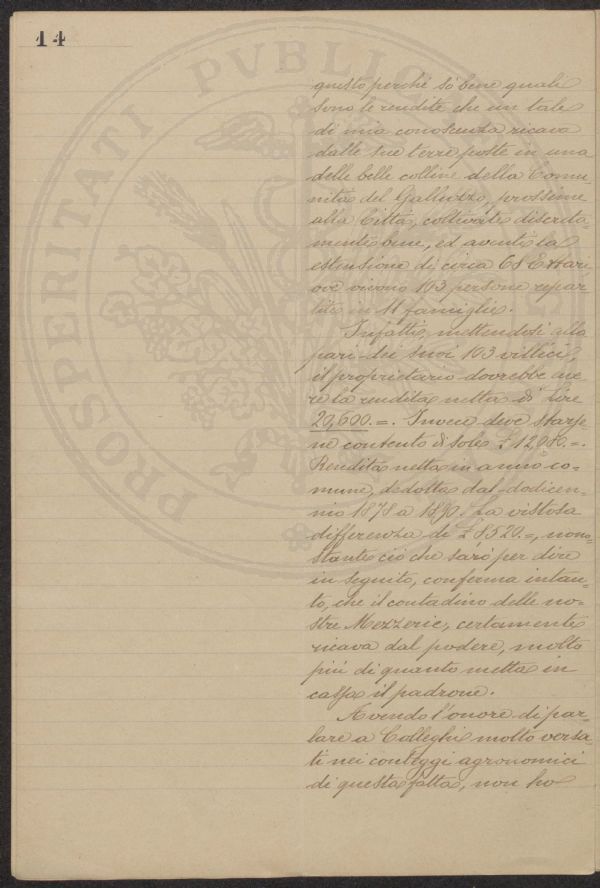 14
PROSPERITATI PVBLIC
questo perchè sò bene quali
sono le rendite che un tale
di mia conoscenza ricava
dalle sue terre poste in una
delle belle colline della Comu
nità del Galluzzo, prossime
alla Città, coltivate discreta-
mente bene, ed aventi la
estensione di circa 68 Ettari
ove vivono 103 persone repar
tite in 11 famiglie.
Infatti, mettendosi alla
pari dei suoi 103 villici,
il proprietario dovrebbe ave
re la rendita netta di Lire
20,600.=. Invece deve starse
ne contento di sole £ 12,080.=.
Rendita netta in anno co-
mune, dedotta dal dodicen-
nio 1878 a 1890. La vistosa
differenza di £ 8520.=, nono-
stante ciò che sarò per dire
in seguito, conferma intan-
to, che il contadino delle no=
stre Mezzerie, certamente
ricava dal podere, molto
più di quanto metta in
cassa il padrone.
Avendo l'onore di par-
lare a Colleghi molto versa
ti nei conteggi agronomici
di questa fatta, non ho